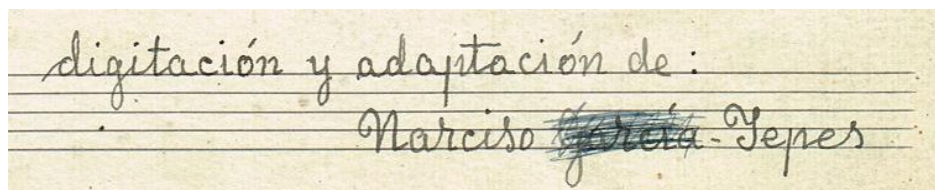 digitación y adaptación de:
Narciso García-Yepes